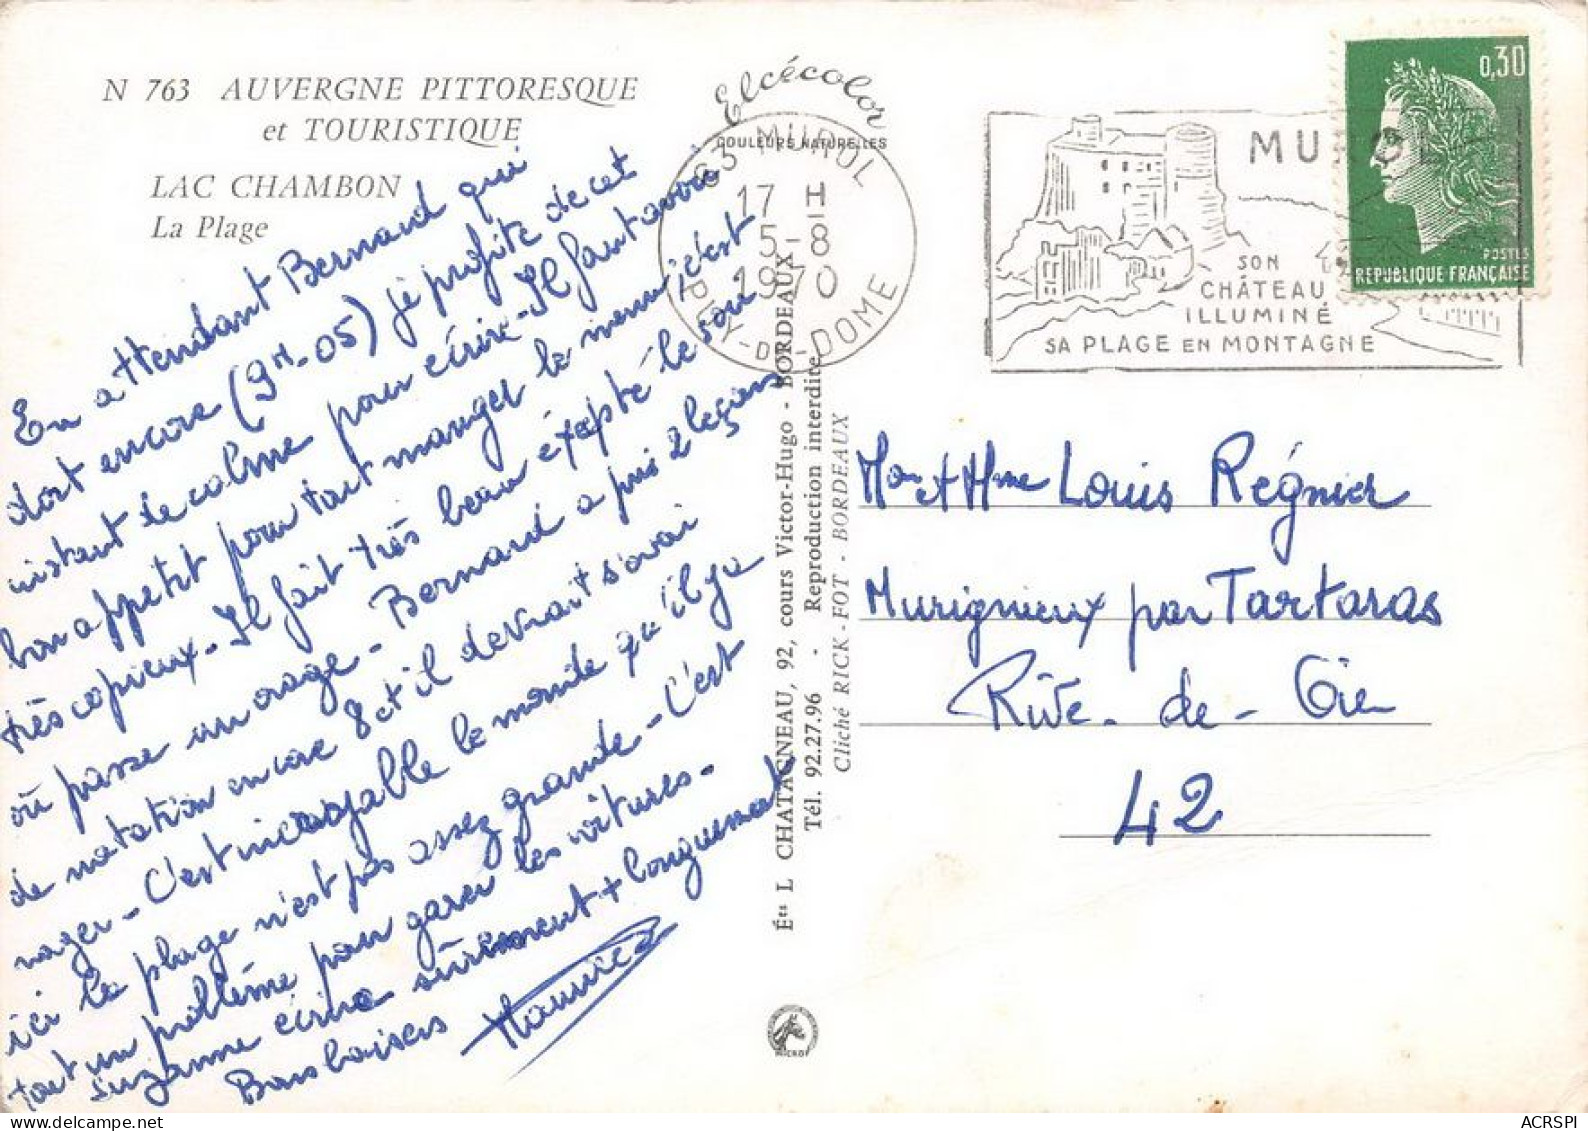 N 763 AUVERGNE PITTORESQUE
et TOURISTIQUE
LAC CHAMBON
La Plage
Elcécolor
COULEURS NATURELLES
63 MUROL
17 H
5-8
1970
PUY-DE-DOME
MUROL
SON
CHÂTEAU
ILLUMINÉ
SA PLAGE EN MONTAGNE
0,30
POSTES
REPUBLIQUE FRANÇAISE
En attendant Bernard qui
dort encore (9H-05) je profite de cet
instant de calme pour écrire - Il faut avoir
bon appetit pour tout manger le menu, c'est
très copieux - Il fait très beau éxepté le soir
où passe un orage - Bernard a pris 2 leçons
de natation encore 8 et il devrait s'avoi
nager - C'est incroyable le monde qu'il y a
ici la plage n'est pas assez grande - C'est
tout un problème pour garer les voitures -
Suzanne écrira sûrement + longuement
Bons baisers Maurice
Éts L CHATAGNEAU, 92, cours Victor-Hugo - BORDEAUX
Tél. 92.27.96 - Reproduction interdite
Cliché RICK-FOT - BORDEAUX
Mon et Mme Louis Régnier
Murignieux par Tartaras
Rive-de-Gier
42
MICROF
ACRSPI